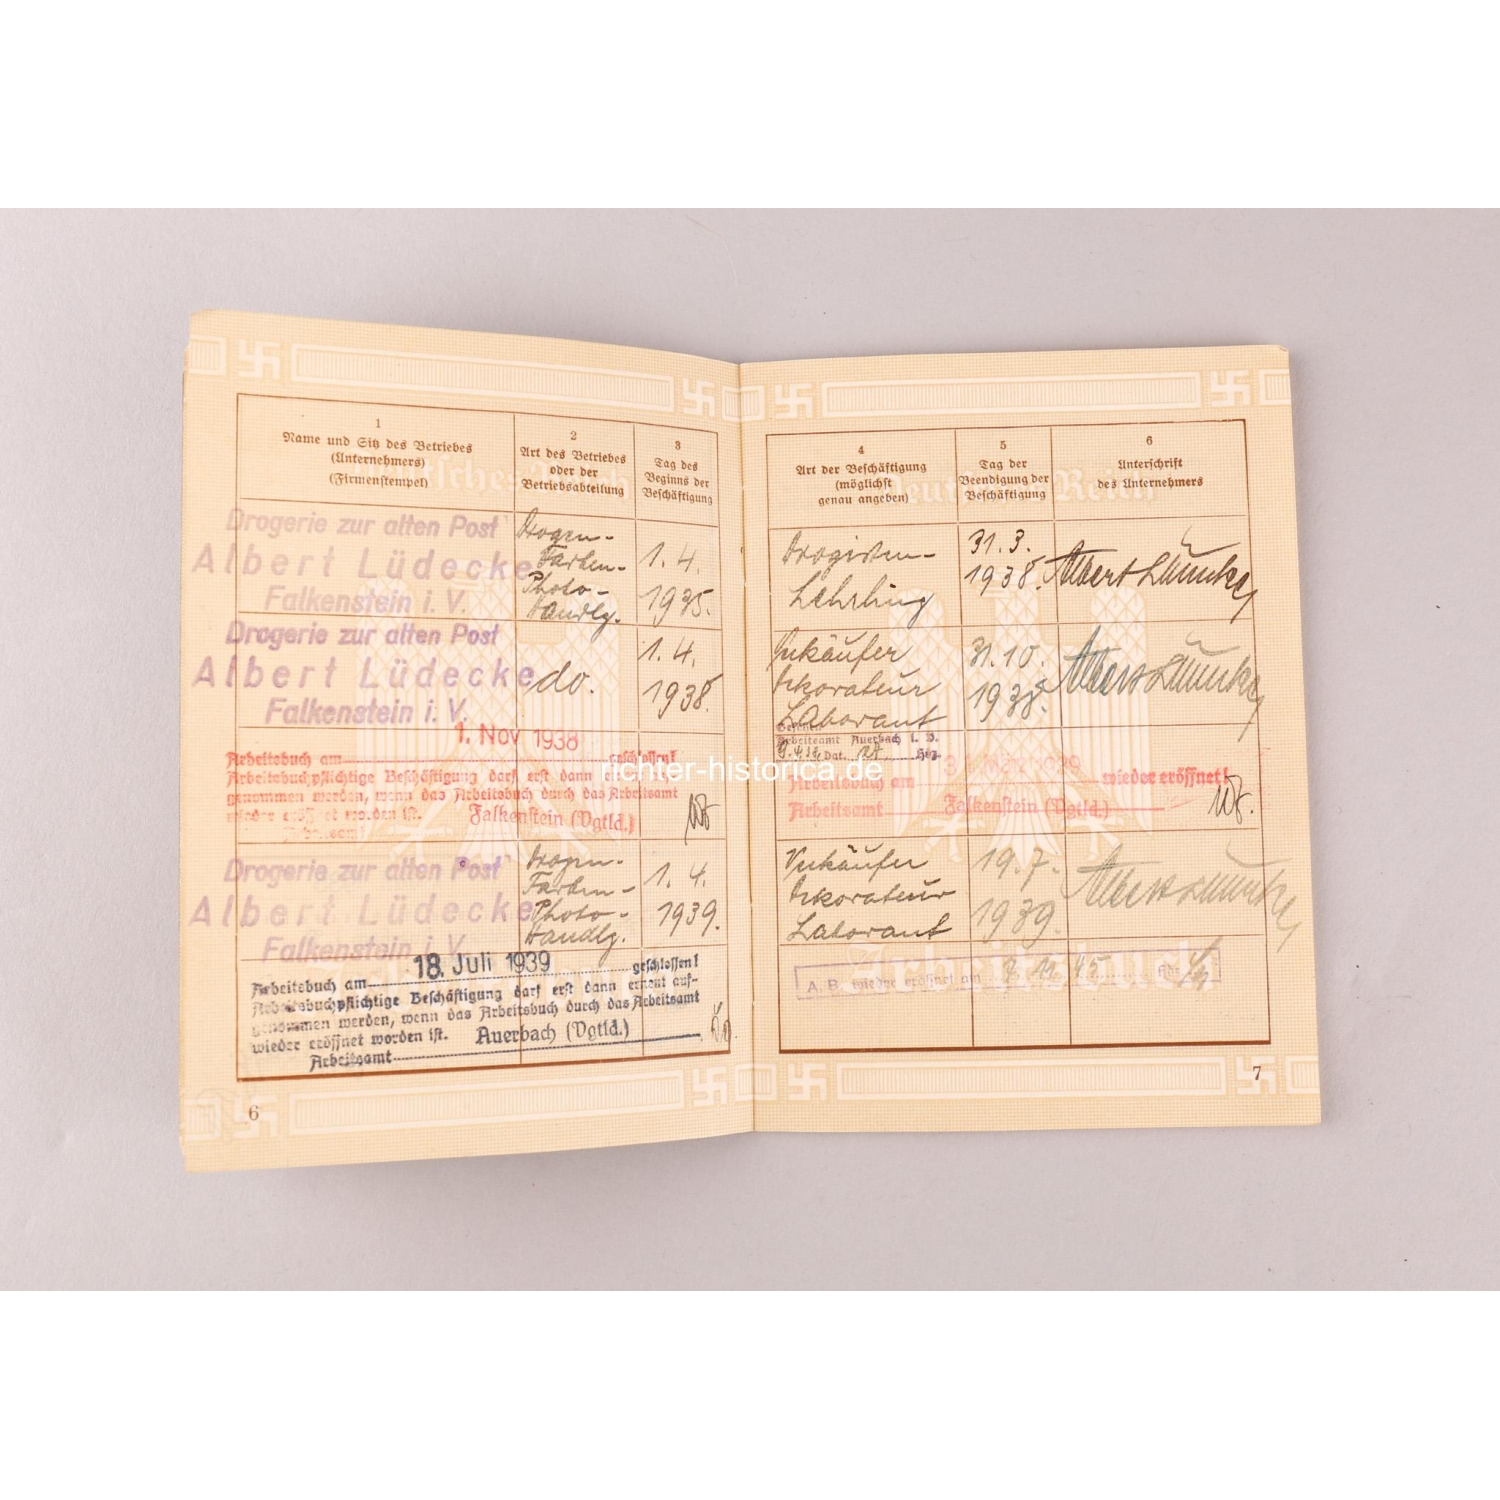 1
Name und Sitz des Betriebes
(Unternehmers)
(Firmenstempel)
2
Art des Betriebes
oder der
Betriebsabteilung
3
Tag des
Beginns der
Beschäftigung
Drogerie zur alten Post
Albert Lüdecke
Falkenstein i. V.
Drogen-
Farben-
Photo-
Handlg.
1. 4.
1935.
Drogerie zur alten Post
Albert Lüdecke
Falkenstein i. V.
do.
1. 4.
1938.
1. Nov 1938
Arbeitsbuch am geschlossen!
Arbeitsbuchpflichtige Beschäftigung darf erst dann
genommen werden, wenn das Arbeitsbuch durch das Arbeitsamt
wieder eröffnet worden ist. Falkenstein (Vgtld.)
Arbeitsamt
Drogerie zur alten Post
Albert Lüdecke
Falkenstein i. V.
Drogen-
Farben-
Photo-
Handlg.
1. 4.
1939.
18. Juli 1939
Arbeitsbuch am geschlossen!
Arbeitsbuchpflichtige Beschäftigung darf erst dann erneut auf-
genommen werden, wenn das Arbeitsbuch durch das Arbeitsamt
wieder eröffnet worden ist. Auerbach (Vgtld.)
Arbeitsamt
6
4
Art der Beschäftigung
(möglichst
genau angeben)
5
Tag der
Beendigung der
Beschäftigung
6
Unterschrift
des Unternehmers
Drogisten-
Lehrling
31. 3.
1938.
Albert Lüdecke
Verkäufer
Dekorateur
Laborant
31. 10.
1938.
Albert Lüdecke
Gesehen
Arbeitsamt Auerbach i. V.
Dat. Hdz.
Arbeitsbuch am 31. März 1939 wieder eröffnet!
Arbeitsamt Falkenstein (Vgtld.)
Verkäufer
Dekorateur
Laborant
19. 7.
1939.
Albert Lüdecke
A. B. wieder eröffnet am 7. 11. 45
7
richter-historica.de